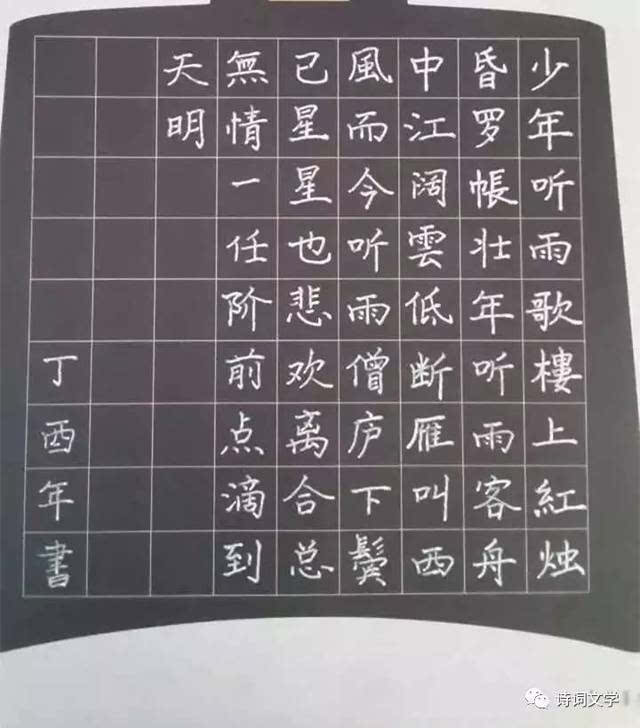 少年听雨歌樓上紅烛
昏罗帳壮年听雨客舟
中江阔雲低断雁叫西
風而今听雨僧庐下鬓
已星星也悲欢离合总
無情一任阶前点滴到
天明
丁酉年書
诗词文学